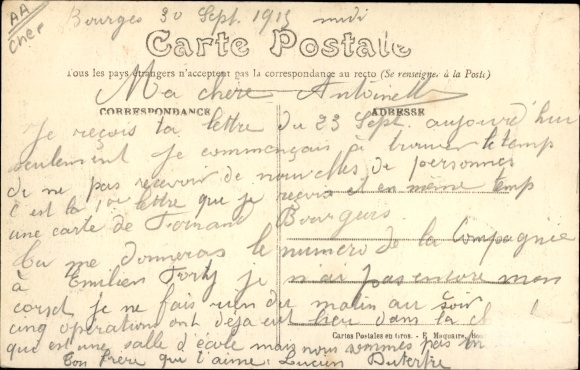 AA
Cher
Bourges 30 Sept. 1915 midi
Carte Postale
Tous les pays étrangers n'acceptent pas la correspondance au recto (Se renseigner à la Poste)
Ma chère Antoinette
CORRESPONDANCE
ADRESSE
Je reçois ta lettre du 23 Sept. aujourd'hui
seulement je commençais à trouver le temps
de ne pas recevoir de nouvelles de personnes
C'est la 1ère lettre que je reçois et en même temps
une carte de Fernand Bourgeois
Tu me donneras le numéro de la Compagnie
à Emilien je n'ai pas encore mon
corset je ne fais rien du matin au soir
cinq opérations ont déjà eut lieu dans la
Cartes Postales en gros. - E. Maquaire,
que est une salle d'école mais nous sommes pas
Ton frère qui t'aime. Lucien Dutertre